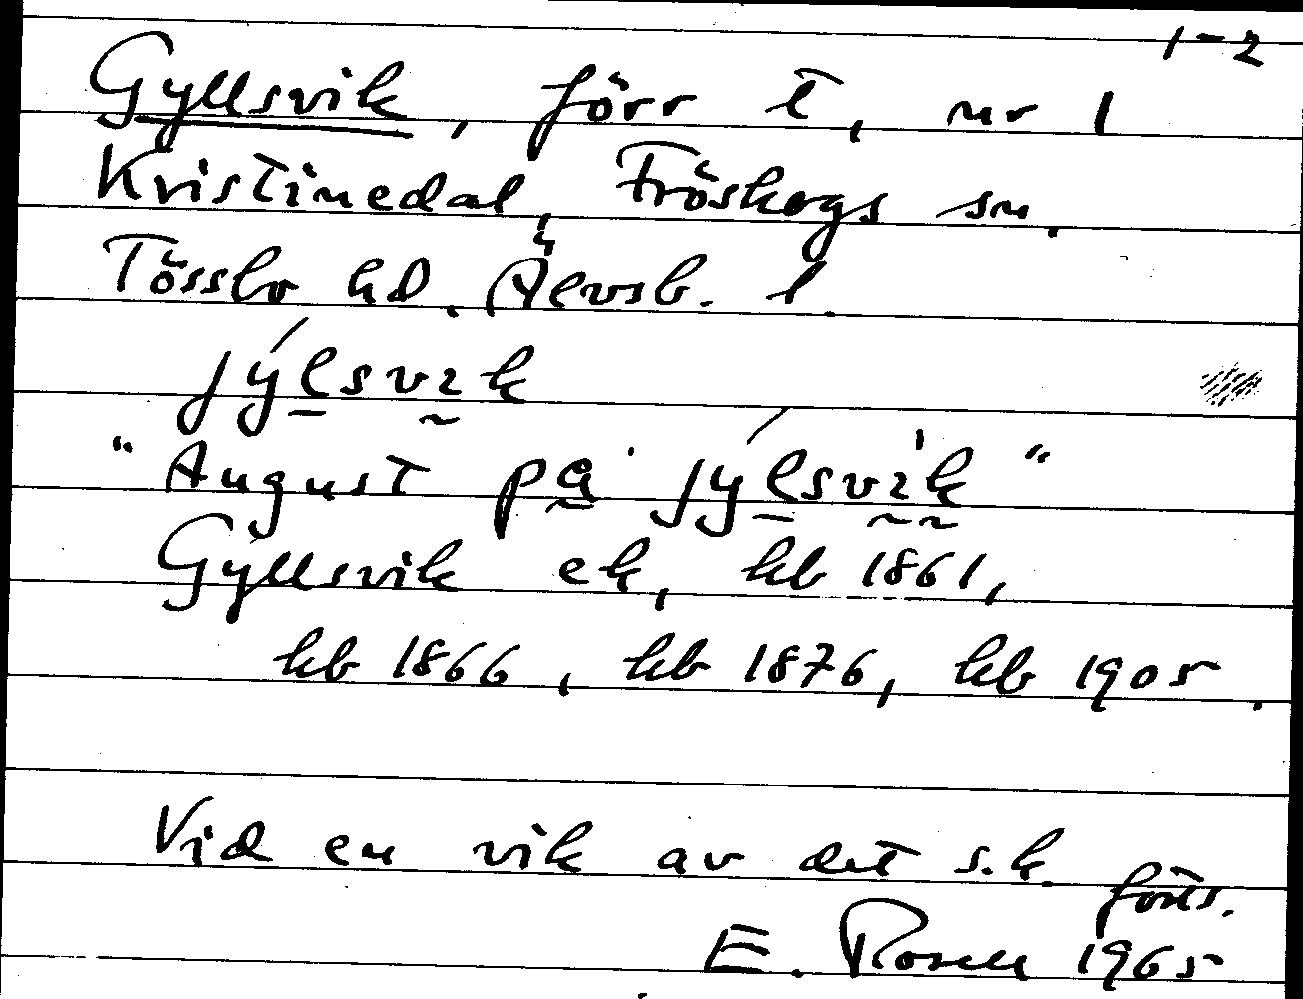 1-2
Gyllsvik, förr t, nr 1
Kristinedal, Fröskogs sn.
Tössbo hd. Älvsb. l.
jýlsvɪk
"August på jýlsvɪ̀k"
Gyllsvik ek, hb 1861,
hb 1866, hb 1876, hb 1905.
Vid en vik av det s.k. forts.
E. Rosell 1965